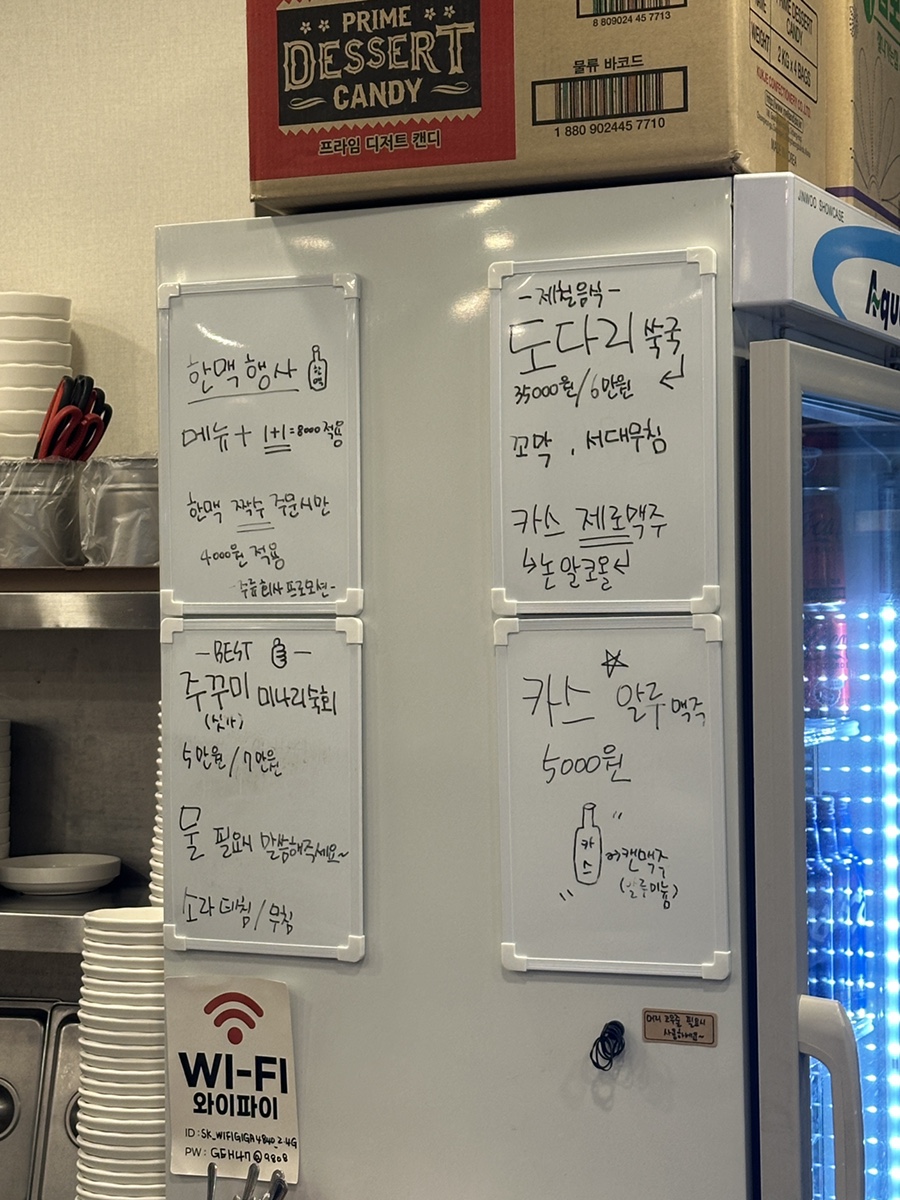 PRIME
DESSERT
CANDY
프라임 디저트 캔디
8 809024 45 7713
물류 바코드
1 880 902445 7710
PRIME DESSERT
CANDY
WEIGHT
2 KG x 4 BAGS
KUKJE CONFECTIONERY CO., LTD.
JINWOO SHOWCASE
Aqu
한맥 행사
한맥
메뉴 + 1+1=8000 적용
한맥 짝수 주문시만
4000원 적용
-주류회사 프로모션-
-제철음식-
도다리 쑥국
35000원/6만원
꼬막, 서대무침
카스 제로맥주
논알코올
-BEST-
주꾸미 미나리숙회
5만원/7만원
물 필요시 말씀해주세요~
소라 데침/무침
카스 알루맥주
5000원
카스
캔맥주
(알루미늄)
머리 고무줄 필요시
사용하세요~
WI-FI
와이파이
ID: SK_WIFIGIGA4840_2.4G
PW: GEH47@9808